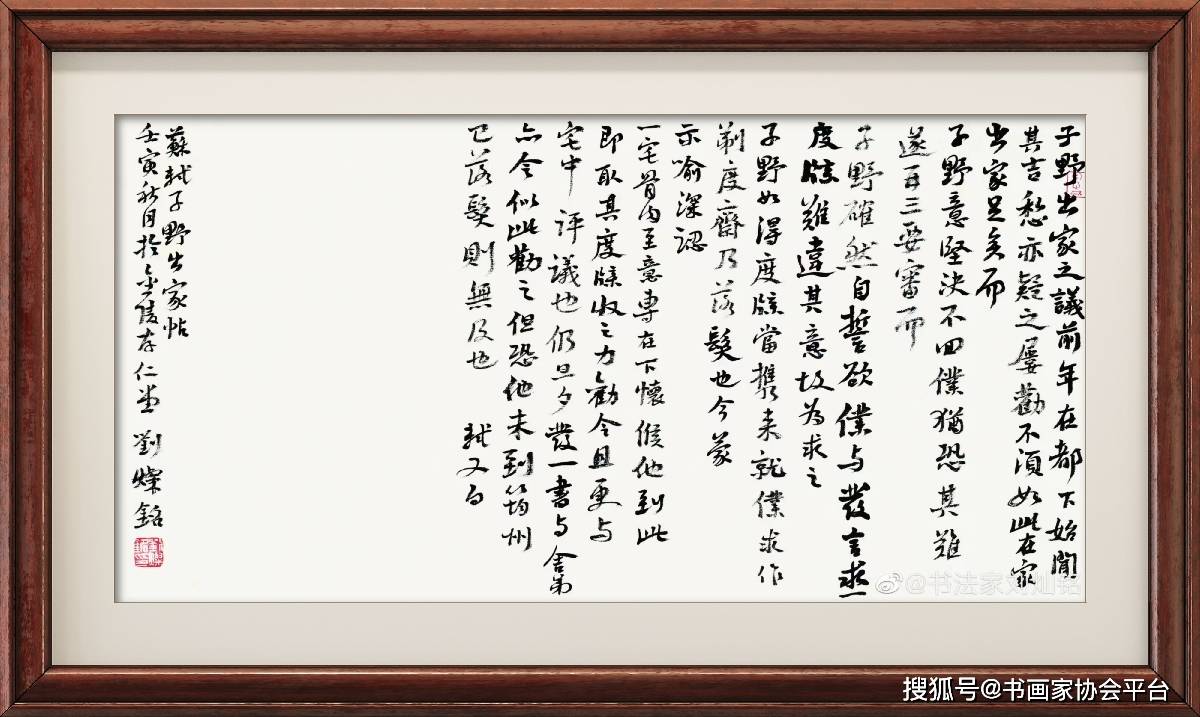 子野出家之議前年在都下始聞
其吉愁亦疑之屢勸不須如此在家
出家足矣而
子野意堅決不回僕猶恐其難
遂再三要審而
子野確然自誓欲僕与發言求一
度牒難違其意故為求之
子野如得度牒當攜来就僕求作
剃度齋乃落髮也今蒙
示喻深認
一宅骨肉至意專在下懷候他到此
即取其度牒收之力勸令且更与
宅中評議也仍旦夕發一書与舍弟
亦令似此勸之但恐他未到筠州
已落髮則無及也 軾又白
蘇軾子野出家帖
壬寅秋月於金陵存仁堂 劉燦銘
@书法家刘灿铭
搜狐号@书画家协会平台